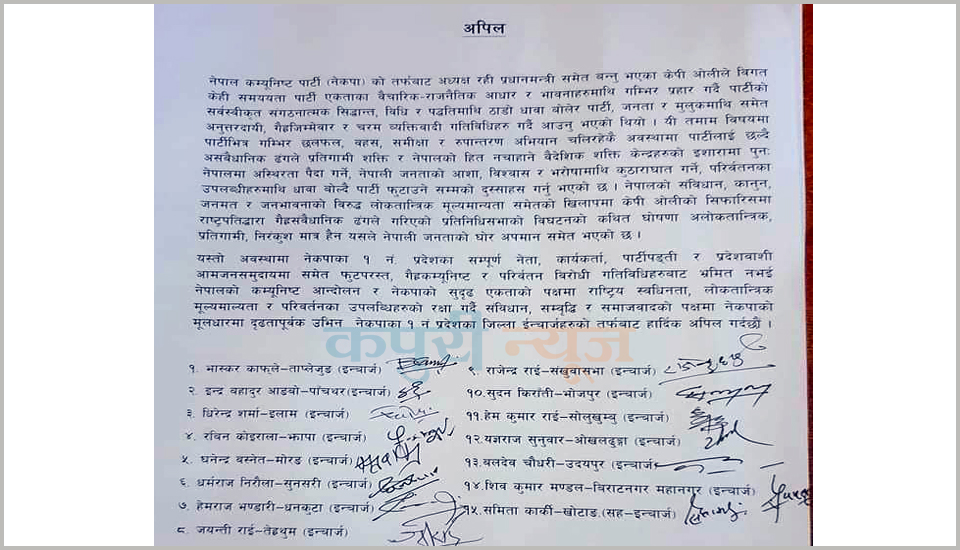 अपिल
नेपाल कम्यूनिष्ट पार्टी (नेकपा) को तर्फबाट अध्यक्ष रही प्रधानमन्त्री समेत बन्नु भएका केपी ओलीले विगत
केही समययता पार्टी एकताका वैचारिक-राजनैतिक आधार र भावनाहरुमाथि गम्भिर प्रहार गर्दै पार्टीको
सर्वस्वीकृत संगठनात्मक सिद्धान्त, विधि र पद्धतिमाथि ठाडो धावा बोलेर पार्टी, जनता र मुलुकमाथि समेत
अनुत्तरदायी, गैह्रजिम्मेवार र चरम व्यक्तिवादी गतिविधिहरु गर्दै आउनु भएको थियो । यी तमाम विषयमा
पार्टीभित्र गम्भिर छलफल, वहस, समीक्षा र रुपान्तरण अभियान चलिरहेकै अवस्थामा पार्टीलाई छल्दै
असवैधानिक ढंगले प्रतिगामी शक्ति र नेपालको हित नचाहाने वैदेशिक शक्ति केन्द्रहरुको इशारामा पुन:
नेपालमा अस्थिरता पैदा गर्ने, नेपाली जनताको आशा, विश्वास र भरोपामाथि कुठाराघात गर्ने, परिवर्तनका
उपलब्धीहरुमाथि धावा बोल्दै पार्टी फुटाउने सम्मको दुस्साहस गर्नु भएको छ । नेपालको संविधान, कानुन,
जनमत र जनभावनाको विरुद्ध लोकतान्त्रिक मूल्यमान्यता समेतको खिलापमा केपी ओलीको सिफारिसमा
राष्ट्रपतिद्वारा गैह्रसवैधानिक ढंगले गरिएको प्रतिनिधिसभाको विघटनको कथित घोषणा अलोकतान्त्रिक,
प्रतिगामी, निरंकुश मात्र हैन यसले नेपाली जनताको घोर अपमान समेत भएको छ ।
यस्तो अवस्थामा नेकपाका १ नं. प्रदेशका सम्पूर्ण नेता, कार्यकर्ता, पार्टीपङ्ती र प्रदेशवाशी
आमजनसमुदायमा समेत फुटपरस्त, गैह्रकम्यूनिष्ट र परिर्वतन विरोधी गतिविधिहरुबाट भ्रमित नभई
नेपालको कम्यूनिष्ट आन्दोलन र नेकपाको सुदृढ एकताको पक्षमा राष्ट्रिय स्वधिनता, लोकतान्त्रिक
मूल्यमाल्यता र परिवर्तनका उपलब्धिहरुको रक्षा गर्दै संविधान, सम्वृद्धि र समाजवादको पक्षमा नेकपाको
मूलधारमा दृढतापूर्वक उभिन नेकपाका १ नं प्रदेशका जिल्ला ईन्चार्जहरुको तर्फबाट हार्दिक अपिल गर्दछौं ।
कपुरी न्यूज
१. भास्कर काफ्ले-ताप्लेजुङ (इन्चार्ज)
२. इन्द्र बहादुर आङबो-पाँचथर(इन्चार्ज)
३. धिरेन्द्र शर्मा-इलाम (इन्चार्ज)
४. रविन कोइराला-झापा (इन्चार्ज)
५. घनेन्द्र बस्नेत-मोरङ (इन्चार्ज)
६. धर्मराज निरौला-सुनसरी (इन्चार्ज)
७. हेमराज भण्डारी-धनकुटा (इन्चार्ज)
८. जयन्ती राई-तेह्रथुम (इन्चार्ज)
९. राजेन्द्र राई-संखुवासभा (इन्चार्ज)
१०.सुदन किराँती-भोजपुर (इन्चार्ज)
११.हेम कुमार राई-सोलुखुम्बु (इन्चार्ज)
१२.यज्ञराज सुनुवार-ओखलढुङ्गा (इन्चार्ज)
१३.बलदेव चौधरी-उदयपुर (इन्चार्ज)
१४.शिव कुमार मण्डल-बिराटनगर महानगर (इन्चार्ज)
१५.समिता कार्की-खोटाङ.(सह-इन्चार्ज)